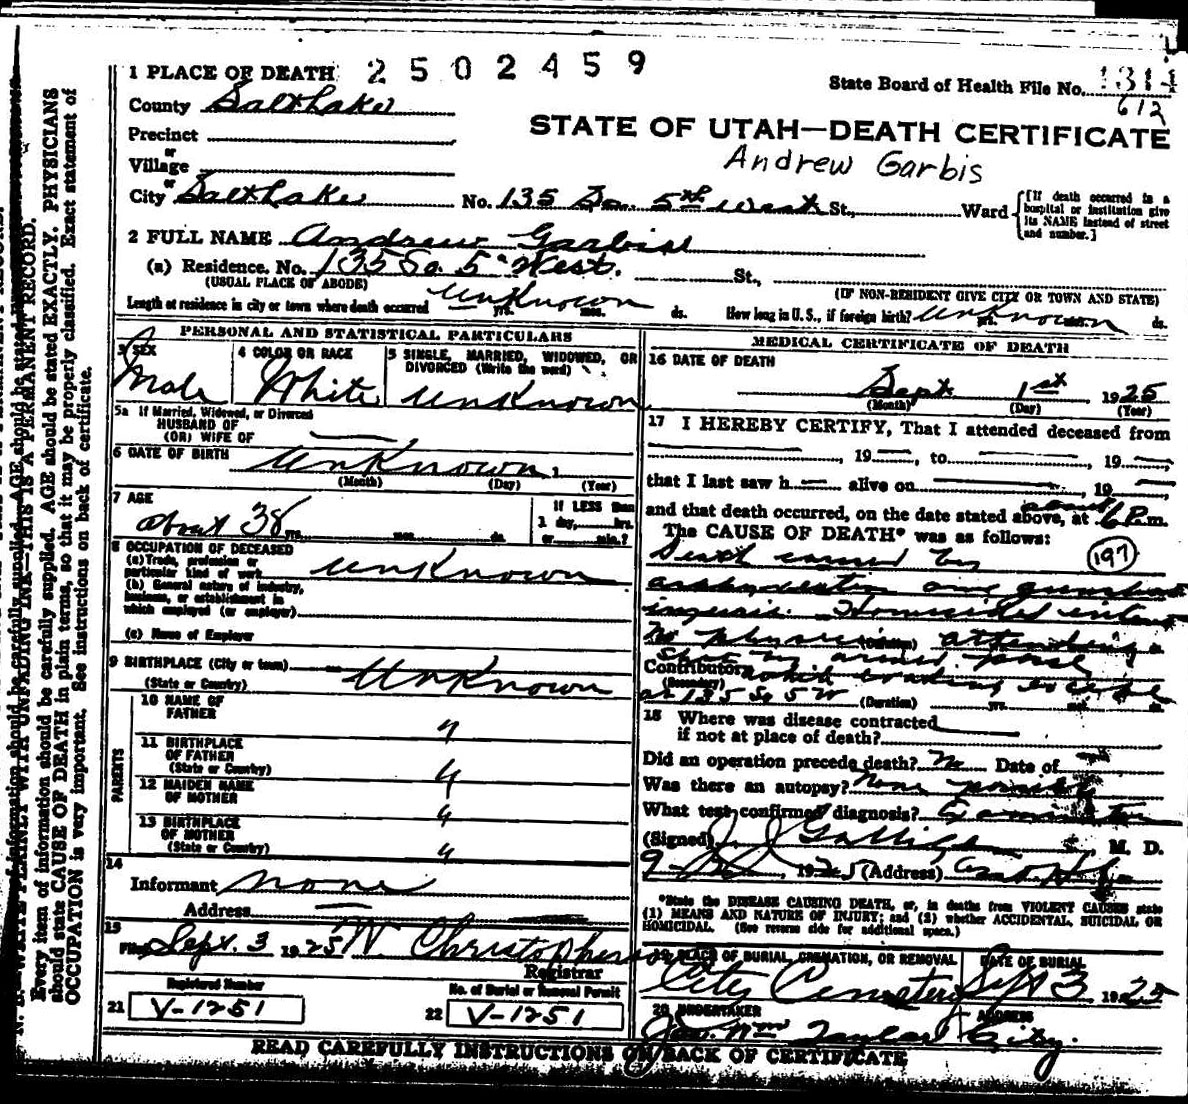 1 PLACE OF DEATH 2502459
State Board of Health File No. 1314
612
County Salt Lake
STATE OF UTAH—DEATH CERTIFICATE
Precinct
Andrew Garbis
or
Village
or
City Salt Lake No. 135 So. 5th West St., Ward
[If death occurred in a hospital or institution give its NAME instead of street and number.]
2 FULL NAME Andrew Garbis
(a) Residence. No. 135 So. 5" West. St.,
(USUAL PLACE OF ABODE) (IF NON-RESIDENT GIVE CITY OR TOWN AND STATE)
Length of residence in city or town where death occurred Unknown yrs. mos. ds. How long in U. S., if foreign birth? Unknown yrs. mos. ds.
PERSONAL AND STATISTICAL PARTICULARS
3 SEX Male
4 COLOR OR RACE White
5 SINGLE, MARRIED, WIDOWED, OR DIVORCED (Write the word) Unknown
5a If Married, Widowed, or Divorced
HUSBAND OF
(OR) WIFE OF
6 DATE OF BIRTH Unknown 1
(Month) (Day) (Year)
7 AGE about 38 yrs. mos. ds.
If LESS than
1 day, hrs.
or min.?
8 OCCUPATION OF DECEASED
(a) Trade, profession or
particular kind of work Unknown
(b) General nature of industry,
business, or establishment in
which employed (or employer)
(c) Name of Employer
9 BIRTHPLACE (City or town) Unknown
(State or Country)
PARENTS
10 NAME OF FATHER "
11 BIRTHPLACE OF FATHER (State or Country) "
12 MAIDEN NAME OF MOTHER "
13 BIRTHPLACE OF MOTHER (State or Country) "
14
Informant None
Address
15
Filed Sept. 3 1925 W Christopherson
Registrar
Registered Number No. of Burial or Removal Permit
21 V-1251 22 V-1251
MEDICAL CERTIFICATE OF DEATH
16 DATE OF DEATH
Sept 1st 1925
(Month) (Day) (Year)
17 I HEREBY CERTIFY, That I attended deceased from
, 19 , to , 19
that I last saw h alive on , 19
and that death occurred, on the date stated above, at about 6 P. m.
The CAUSE OF DEATH* was as follows:
Death caused by (197)
asphyxiation and gunshot
injuries. Homicidal intent
No physician attending
(Duration)
Shot by armed posse
Contributory while evading
(Secondary)
at 135 So 5 W (Duration) yrs. mos. ds.
18 Where was disease contracted
if not at place of death?
Did an operation precede death? No Date of
Was there an autopsy? None
What test confirmed diagnosis?
(Signed) , M. D.
1925 (Address)
*State the DISEASE CAUSING DEATH, or, in deaths from VIOLENT CAUSES state
(1) MEANS AND NATURE OF INJURY; and (2) whether ACCIDENTAL, SUICIDAL OR
HOMICIDAL. (See reverse side for additional space.)
19 PLACE OF BURIAL, CREMATION, OR REMOVAL DATE OF BURIAL
City Cemetery Sept 3 1925
20 UNDERTAKER ADDRESS
Jos. Wm Taylor City.
READ CAREFULLY INSTRUCTIONS ON BACK OF CERTIFICATE
N. B.—WRITE PLAINLY WITH UNFADING INK—THIS IS A PERMANENT RECORD.
Every item of information should be carefully supplied. AGE should be stated EXACTLY. PHYSICIANS
should state CAUSE OF DEATH in plain terms, so that it may be properly classified. Exact statement of
OCCUPATION is very important. See instructions on back of certificate.